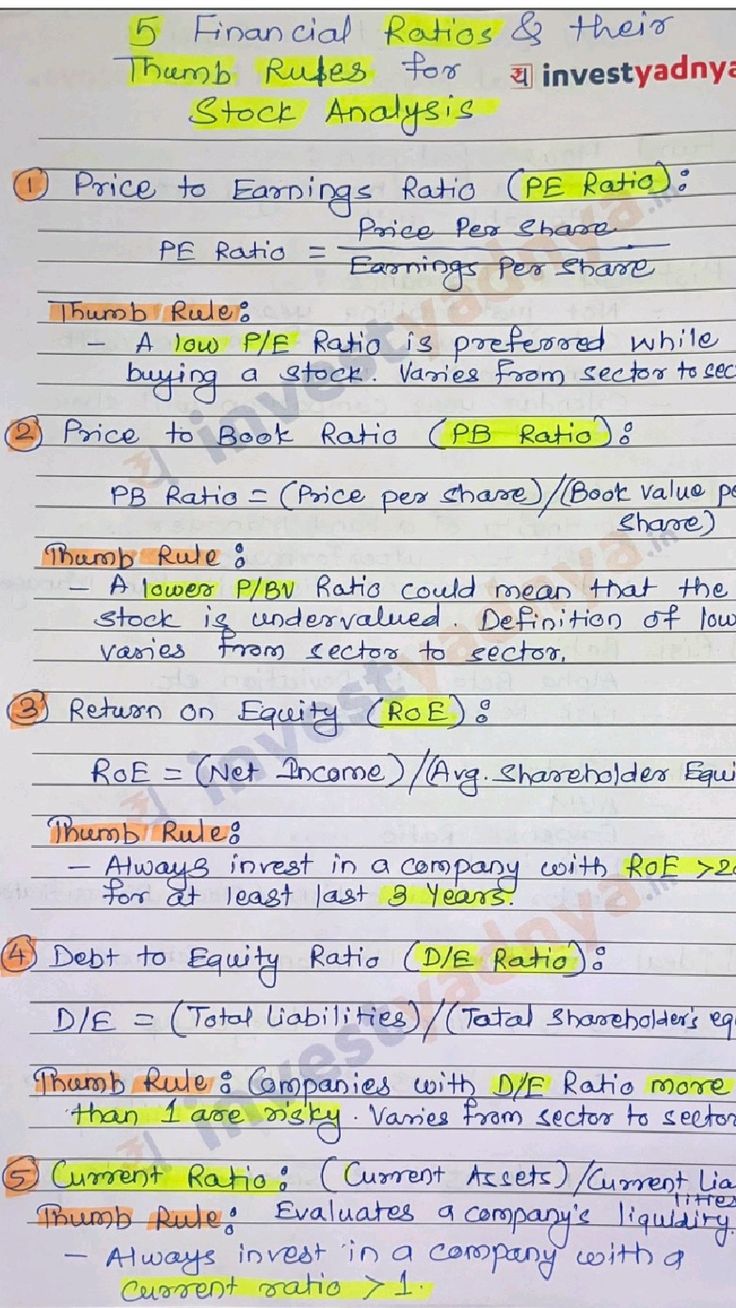 5 Financial Ratios & their
Thumb Rules for
य investyadnya
Stock Analysis
1 Price to Earnings Ratio (PE Ratio):
PE Ratio = Price Per Share
Earnings Per Share
Thumb Rule:
- A low P/E Ratio is preferred while
buying a stock. Varies from sector to sec
2 Price to Book Ratio (PB Ratio):
PB Ratio = (Price per share)/(Book value pe
share)
Thumb Rule:
- A lower P/BV Ratio could mean that the
stock is undervalued. Definition of low
varies from sector to sector.
3 Return on Equity (RoE):
RoE = (Net Income)/(Avg. Shareholder Equi
Thumb Rule:
- Always invest in a company with RoE >20
for at least last 3 Years.
4 Debt to Equity Ratio (D/E Ratio):
D/E = (Total Liabilities)/(Total Shareholder's eq
Thumb Rule: Companies with D/E Ratio more
than 1 are risky. Varies from sector to sector
5 Current Ratio: (Current Assets)/Current Lia
lities
Thumb Rule: Evaluates a company's liquidity.
- Always invest in a company with a
Current ratio > 1.